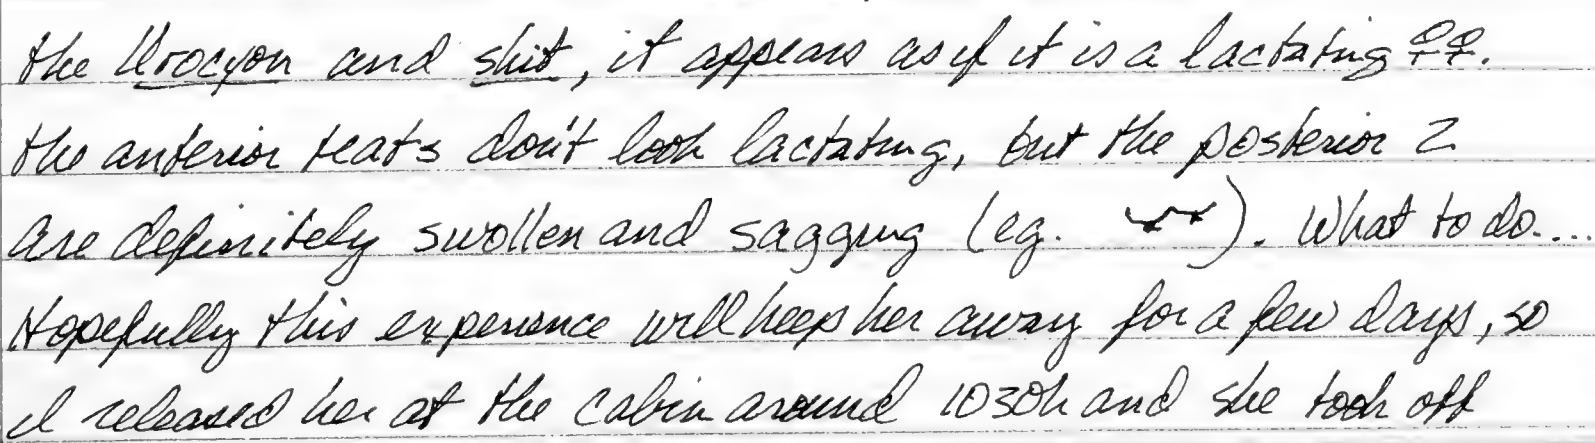 the Urocyon and shit, it appears as if it is a lactating ♀♀.
the anterior teats don't look lactating, but the posterior 2
are definitely swollen and sagging (eg. ). What to do....
Hopefully this experience will keep her away for a few days, so
I released her at the cabin around 1030h and she took off